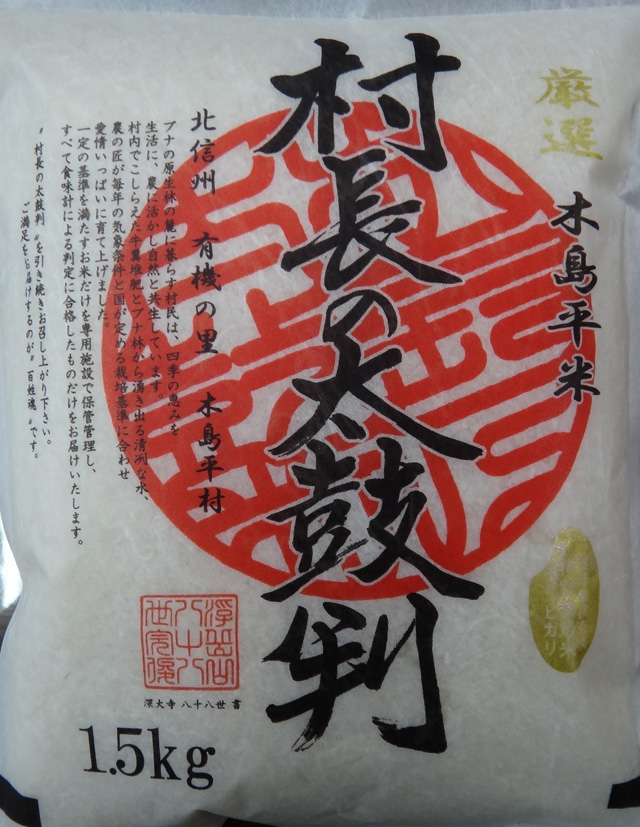 厳選
木島平米
村長の太鼓判
北信州 有機の里 木島平村
ブナの原生林の麓に暮らす村民は、四季の恵みを
生活に、農に活かし自然と共生しています。
村内でこしらえた牛糞堆肥とブナ林から湧き出る清冽な水、
農の匠が毎年の気象条件と国が定める栽培基準に合わせ
愛情いっぱいに育て上げました。
一定の基準を満たすお米だけを専用施設で保管管理し、
すべて食味計による判定に合格したものだけをお届けいたします。
〝村長の太鼓判〟を引き続きお召し上がり下さい。
ご満足をお届けするのが〝百姓魂〟です。
深大寺 八十八世 書
1.5kg